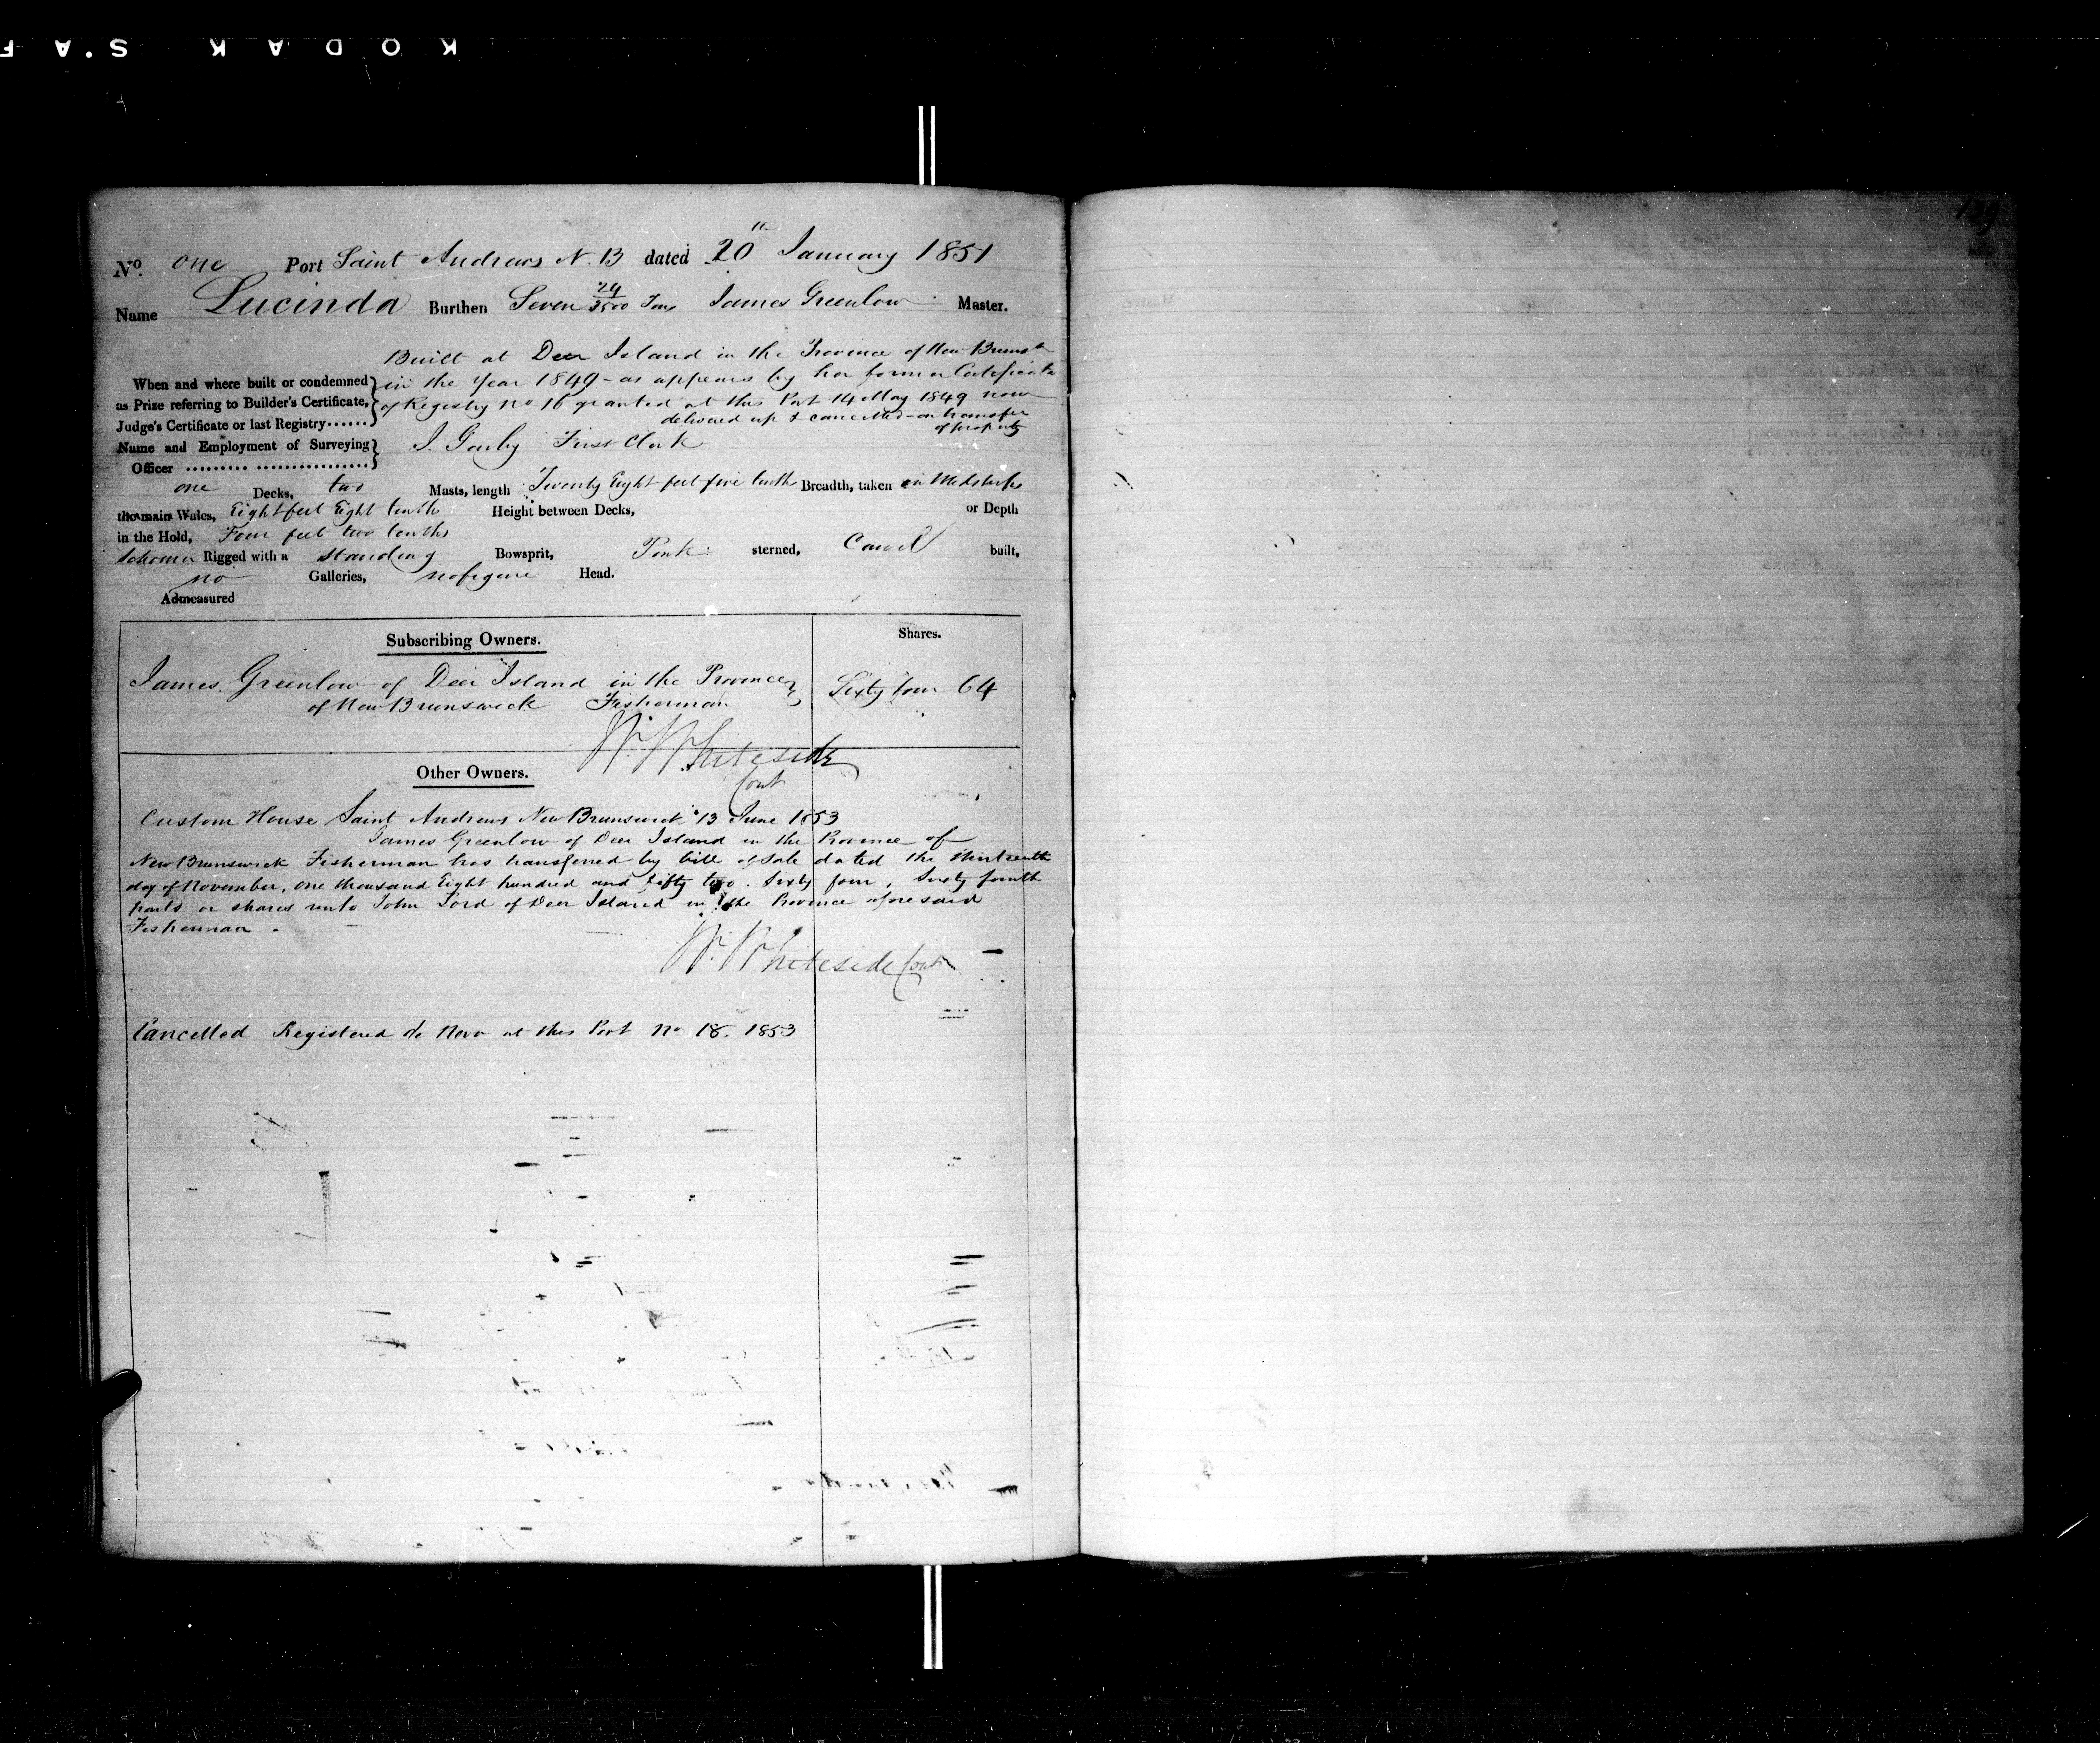 KODAK S.A F
139
No. one Port Saint Andrews N. B dated 20th January 1851
Name Lucinda Burthen Seven 24/3500 Tons James Greenlow Master.
Built at Deer Island in the Province of New Brunsk
When and where built or condemned in the Year 1849 - as appears by her former Certificate
as Prize referring to Builder's Certificate, of Registry no 16 granted at this Port 14 May 1849 now
Judge's Certificate or last Registry...... delivered up & cancelled - on transfer
of property
Name and Employment of Surveying
Officer ......... ................. First Clerk
one Decks, two Masts, length Twenty Eight feet five tenths Breadth, taken in Midships
the main Wales, Eight feet Eight tenths Height between Decks, or Depth
in the Hold, Four feet two tenths
Schoner Rigged with a standing Bowsprit, Pink sterned, Carvel built,
no Galleries, no figure Head.
Admeasured
Subscribing Owners. Shares.
James Greenlow of Deer Island in the Province
of New Brunswick Fisherman Sixty four 64
W. Whiteside
Cont
Other Owners.
Custom House Saint Andrews New Brunswick 13 June 1853
James Greenlow of Deer Island in the Province of
New Brunswick Fisherman has transferred by bill of Sale dated the thirteenth
day of November, one thousand Eight hundred and fifty two. Sixty four, Sixty fourth
parts or shares unto John Lord of Deer Island in the Province aforesaid
Fisherman.
W. Whiteside Cont
Cancelled Registered de Novo at this Port no 18. 1853